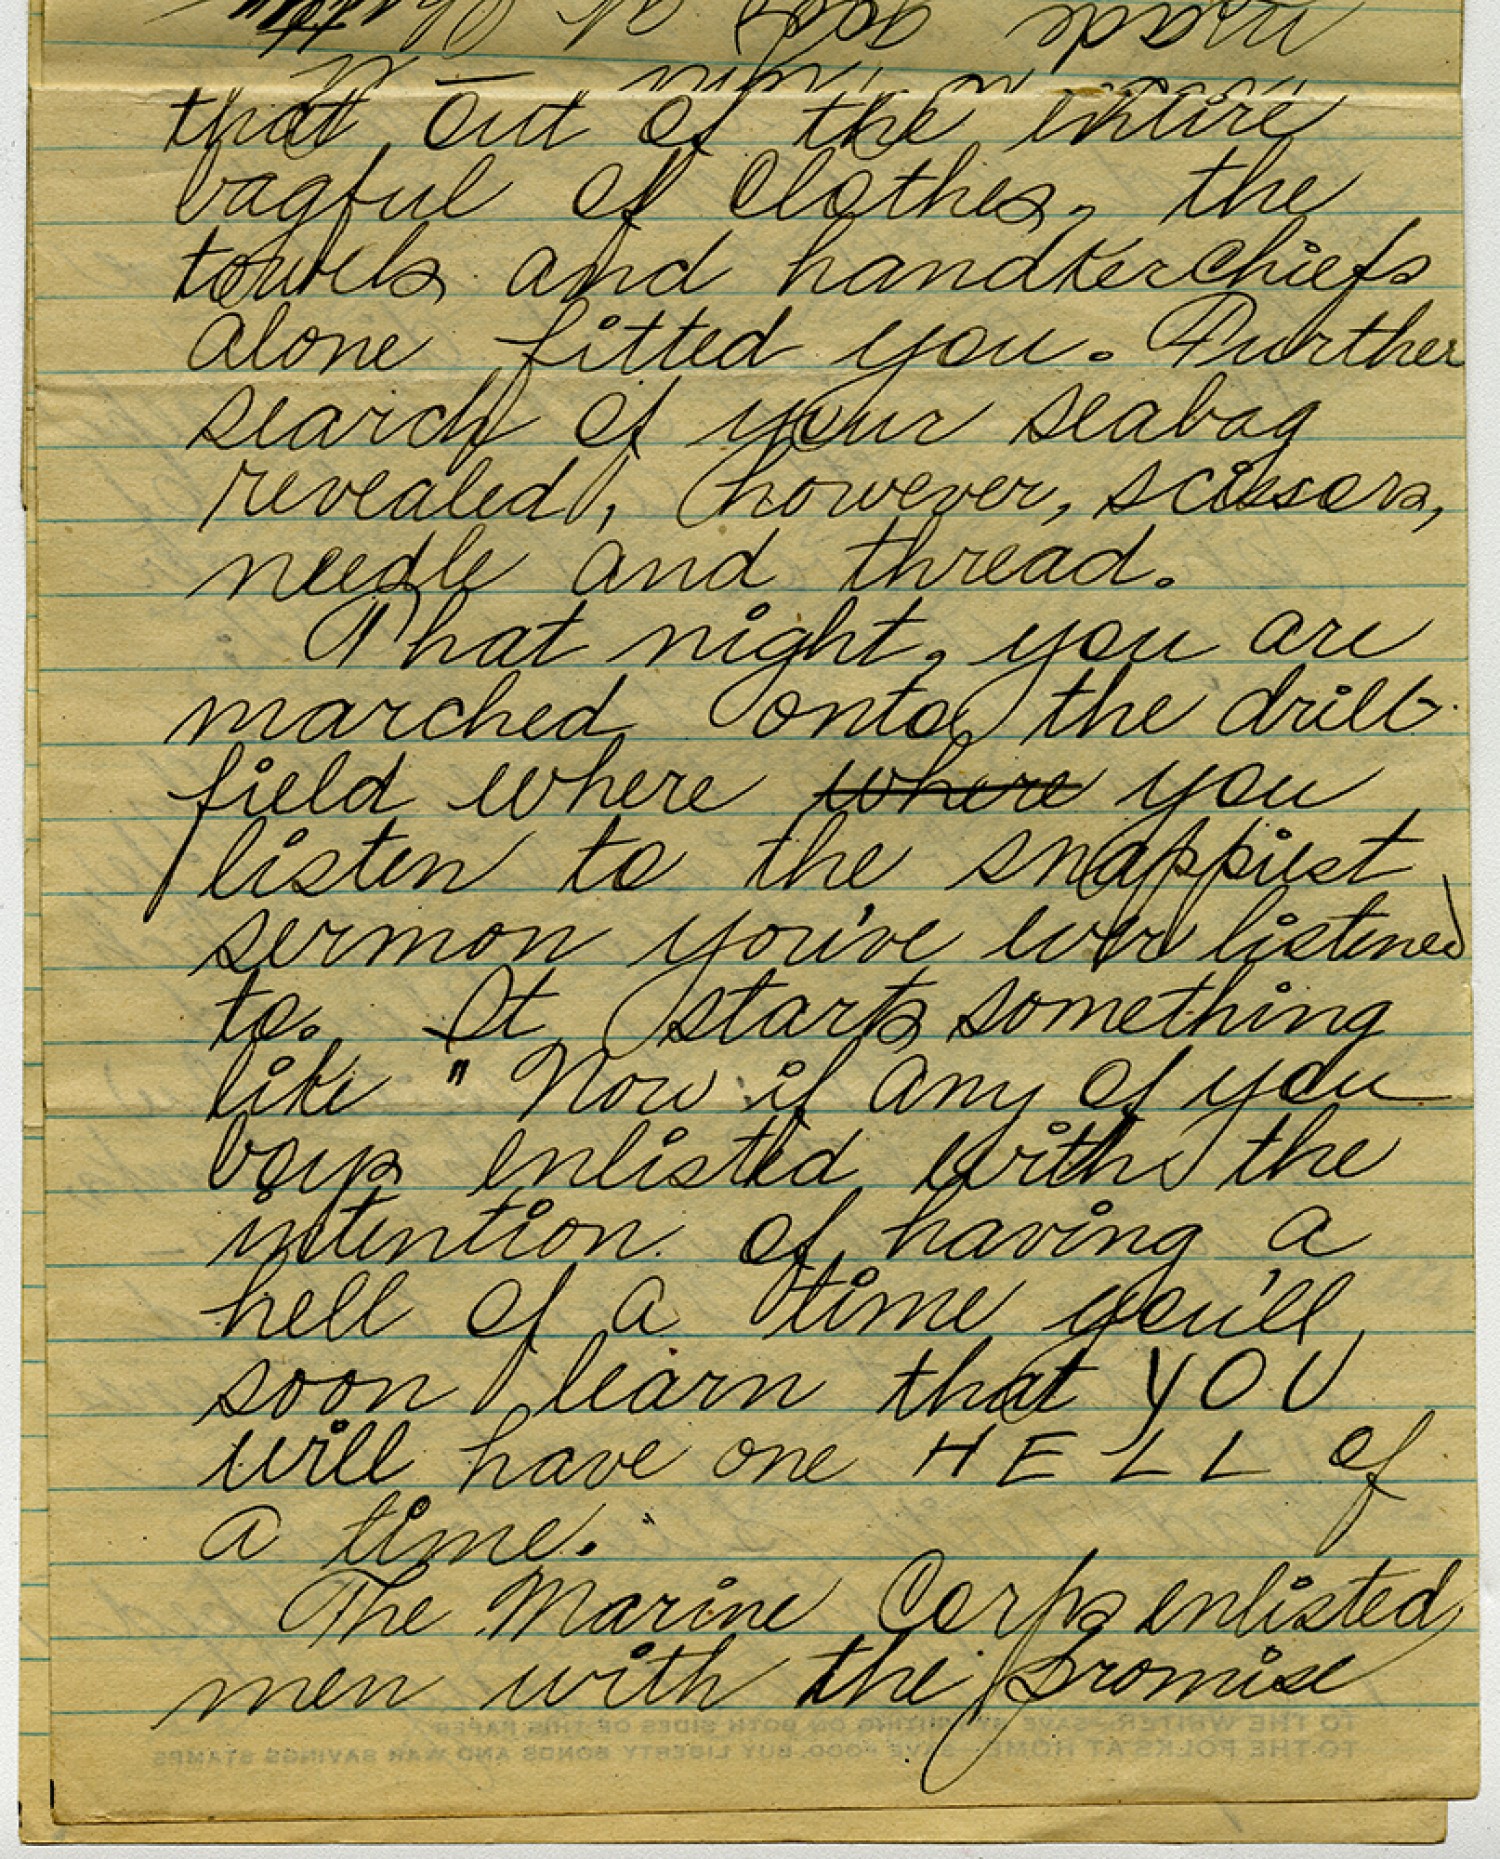 that out of the entire
bagful of clothes, the
towels and handkerchiefs
alone fitted you. Further
search of your seabag
revealed, however, scissors,
needle and thread.
That night, you are
marched onto the drill
field where where you
listen to the snappiest
sermon you've ever listened
to. It starts something
like "Now if any of you
boys enlisted with the
intention of having a
hell of a time you'll
soon learn that YOU
will have one HELL of
a time."
The Marine Corps enlisted
men with the promise
TO THE WRITER—SAVE BY WRITING ON BOTH SIDES OF THIS PAPER
TO THE FOLKS AT HOME—SAVE FOOD, BUY LIBERTY BONDS AND WAR SAVINGS STAMPS